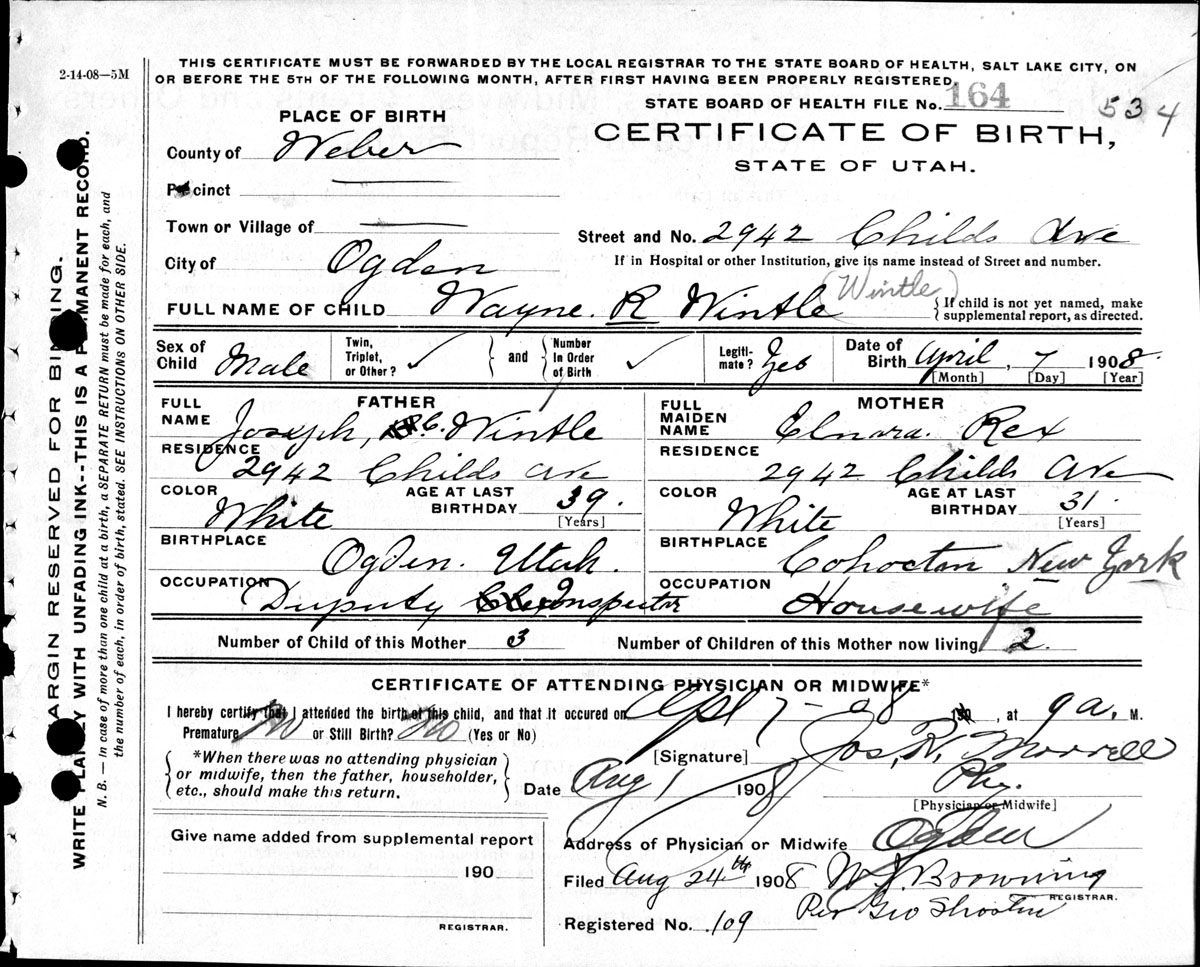 2-14-08—5M
THIS CERTIFICATE MUST BE FORWARDED BY THE LOCAL REGISTRAR TO THE STATE BOARD OF HEALTH, SALT LAKE CITY, ON
OR BEFORE THE 5TH OF THE FOLLOWING MONTH, AFTER FIRST HAVING BEEN PROPERLY REGISTERED
STATE BOARD OF HEALTH FILE No. 164 534
PLACE OF BIRTH
CERTIFICATE OF BIRTH,
STATE OF UTAH.
County of Weber
Precinct
Town or Village of
Street and No. 2942 Childs Ave
City of Ogden
If in Hospital or other Institution, give its name instead of Street and number.
FULL NAME OF CHILD Wayne. R Wintle (Wintle) {If child is not yet named, make
supplemental report, as directed.
Sex of Child Male Twin, Triplet, or Other? ✓ } and { Number In Order of Birth ✓ Legiti-mate? Yes Date of Birth April, 7 1908.
[Month] [Day] [Year]
FATHER
FULL NAME Joseph, C. Wintle
RESIDENCE
2942 Childs Ave
COLOR White AGE AT LAST BIRTHDAY 39.
[Years]
BIRTHPLACE Ogden. Utah.
OCCUPATION Duputy Inspector
MOTHER
FULL MAIDEN NAME Elnora. Rex
RESIDENCE
2942 Childs Ave
COLOR White AGE AT LAST BIRTHDAY 31.
[Years]
BIRTHPLACE Cohocton New York
OCCUPATION Housewife
Number of Child of this Mother 3 Number of Children of this Mother now living 2.
CERTIFICATE OF ATTENDING PHYSICIAN OR MIDWIFE*
I hereby certify that I attended the birth of this child, and that it occured on Apl 7-08 190, at 9 a. M.
Premature No or Still Birth? No (Yes or No)
*When there was no attending physician
or midwife, then the father, householder,
etc., should make this return.
[Signature] Jos, R. Morrell
Date Aug 1 1908 Phy.
[Physician or Midwife]
Give name added from supplemental report
190
REGISTRAR.
Address of Physician or Midwife Ogden
Filed Aug 24th 1908 W. J. Browning
REGISTRAR.
Per Geo
Registered No. 109
MARGIN RESERVED FOR BINDING.
WRITE PLAINLY WITH UNFADING INK--THIS IS A PERMANENT RECORD.
N. B. — In case of more than one child at a birth, a SEPARATE RETURN must be made for each, and
the number of each, in order of birth, stated. SEE INSTRUCTIONS ON OTHER SIDE.